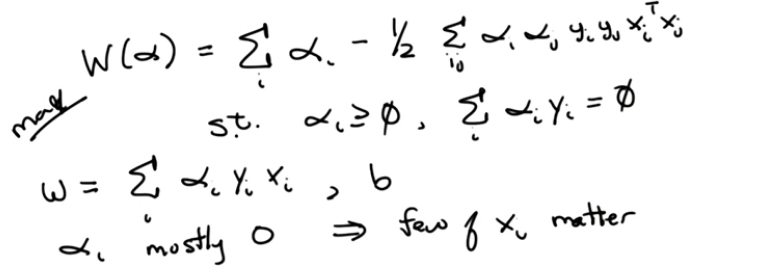 W(α) = Σ_i α_i - 1/2 Σ_ij α_i α_j y_i y_j x_i^T x_j
max
s.t. α_i ≥ ∅, Σ_i α_i y_i = ∅
w = Σ_i α_i y_i x_i, b
α_i mostly 0 ⇒ few of x_i matter